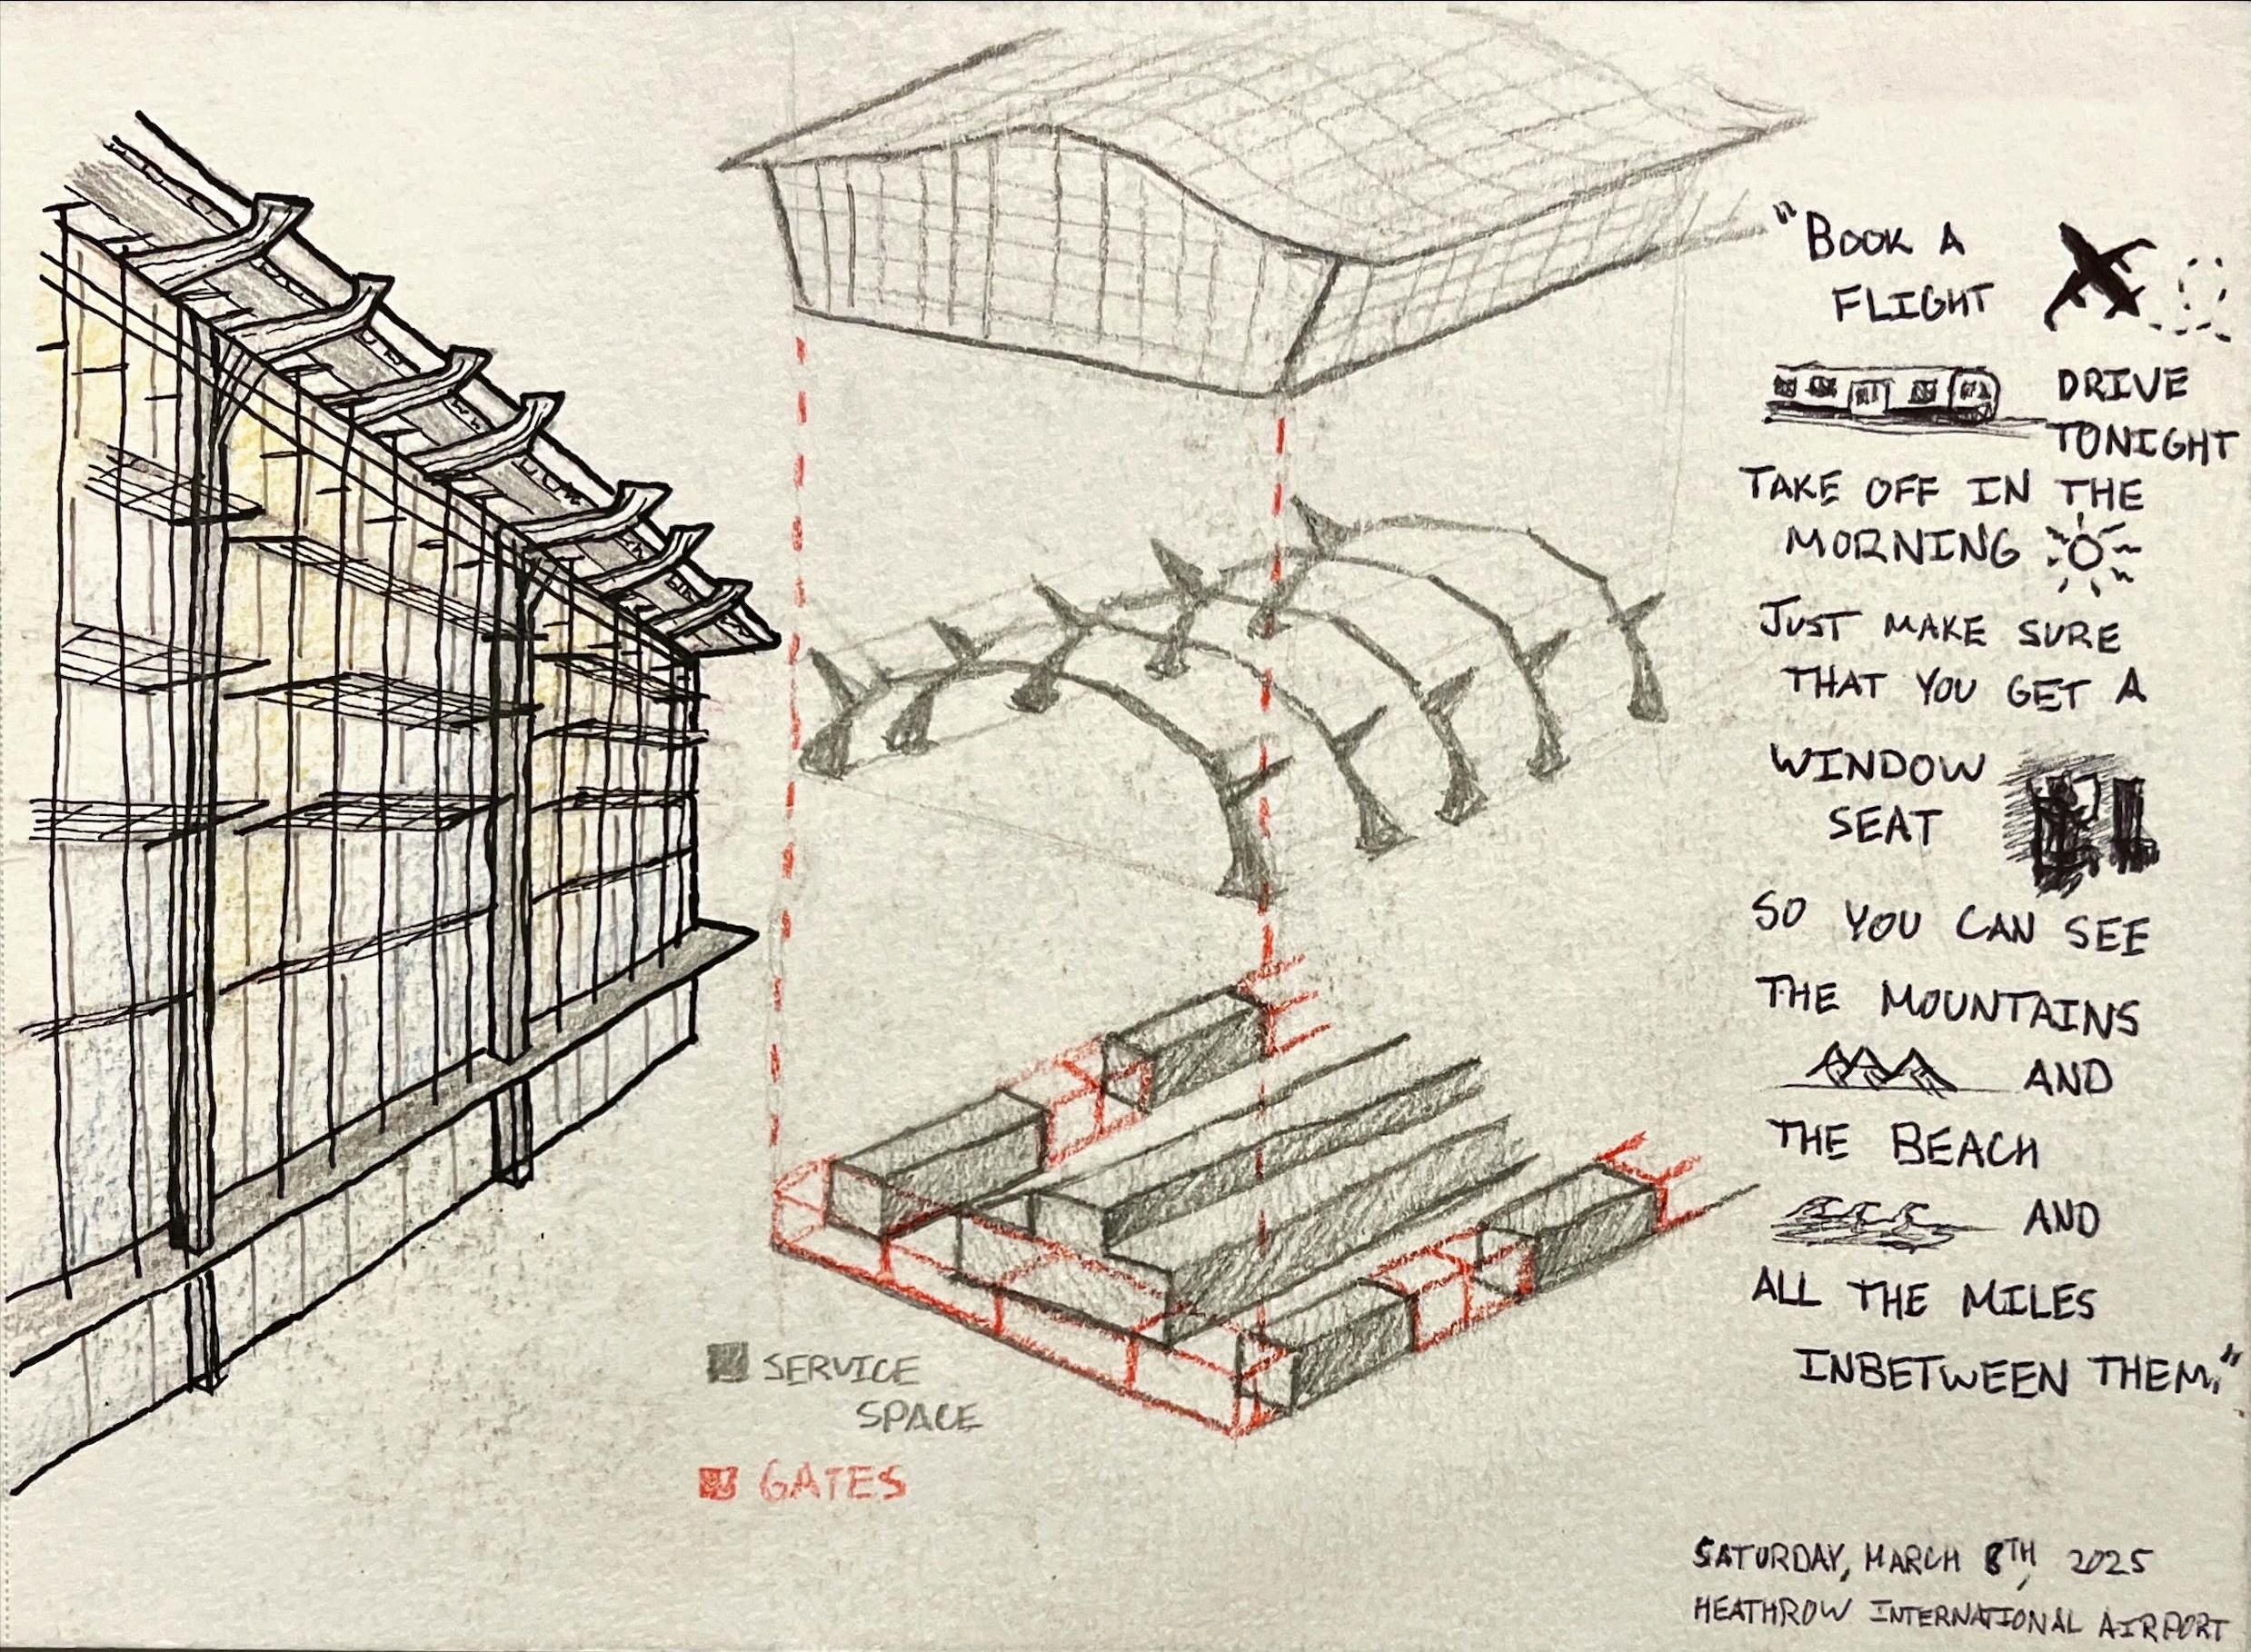 SERVICE
SPACE
GATES
"BOOK A
FLIGHT
DRIVE
TONIGHT
TAKE OFF IN THE
MORNING
JUST MAKE SURE
THAT YOU GET A
WINDOW
SEAT
SO YOU CAN SEE
THE MOUNTAINS
AND
THE BEACH
AND
ALL THE MILES
INBETWEEN THEM."
SATURDAY, MARCH 8TH, 2025
HEATHROW INTERNATIONAL AIRPORT